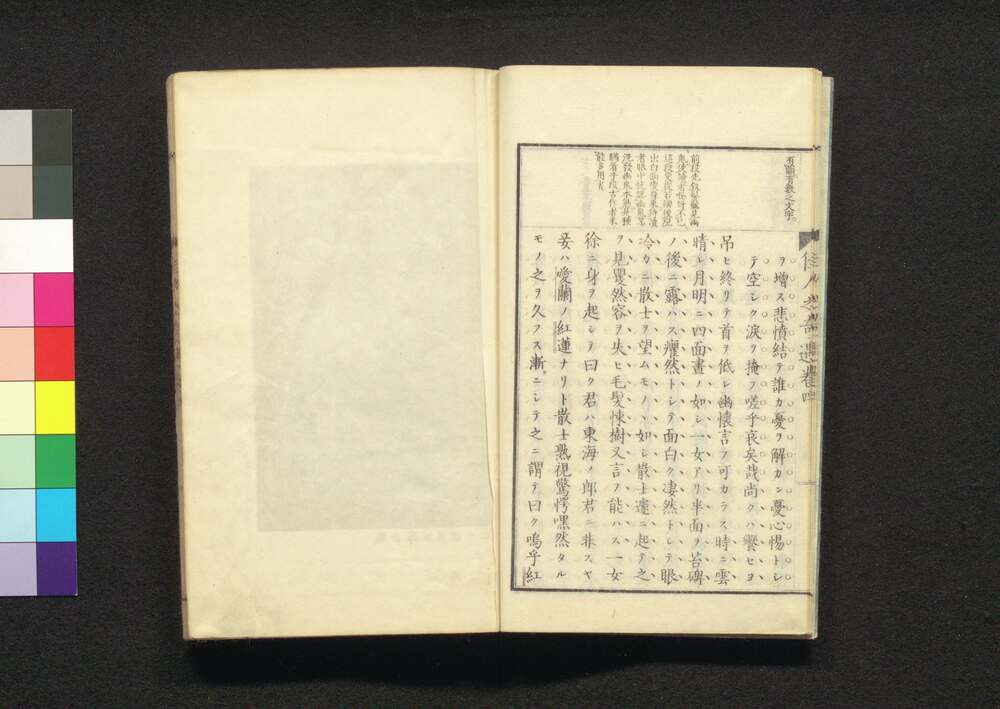 有韻有數之文字。
佳人之奇遇卷四
ヲ増ス悲憤結テ誰カ憂ヲ解カン憂心惕トシ
テ空シク淚ヲ掩フ嗟乎哀矣哉尚クハ饗ヒヨ
吊ヒ終リテ首ヲ低レ幽懷言フ可カラス時ニ雲
晴レ月明ニ四面晝ノ如シ一女アリ半面ヲ苔碑
ノ後ニ露ハス燿然トシテ面白ク凄然トシテ眼
冷カニ散士ヲ望ムモノヽ如シ散士遽ニ起テ之
ヲ見瞿然容ヲ失ヒ毛髮悚樹又言フ能ハス一女
徐ニ身ヲ起シテ曰ク君ハ東海ノ郎君ニ非スヤ
妾ハ愛蘭ノ紅蓮ナリト散士熟視驚愕嘿然タル
モノ之ヲ久フス漸ニシテ之ニ謂テ曰ク嗚乎紅